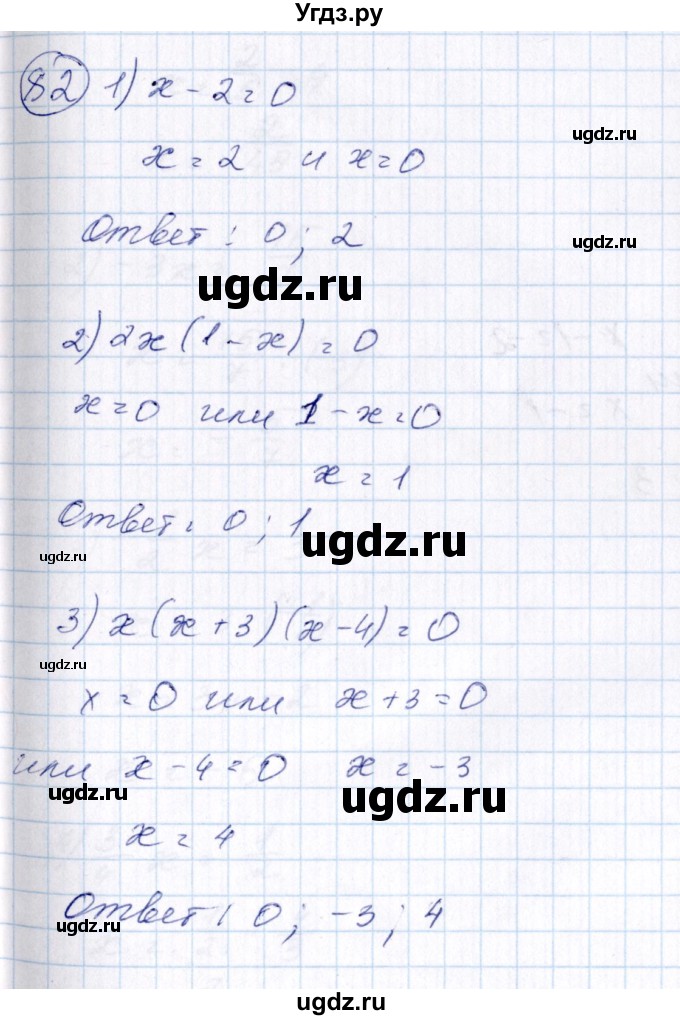 Угдз.ру
82 1) x - 2 = 0
ugdz.ru
x = 2 и x = 0
ugdz.ru
Ответ: 0; 2
ugdz.ru
ugdz.ru
2) 2x(1 - x) = 0
x = 0 или 1 - x = 0
x = 1
Ответ: 0; 1
ugdz.ru
ugdz.ru
ugdz.ru
3) x(x + 3)(x - 4) = 0
ugdz.ru
x = 0 или x + 3 = 0
или x - 4 = 0 x = -3
ugdz.ru
ugdz.ru
x = 4
Ответ: 0; -3; 4
ugdz.ru
ugdz.ru